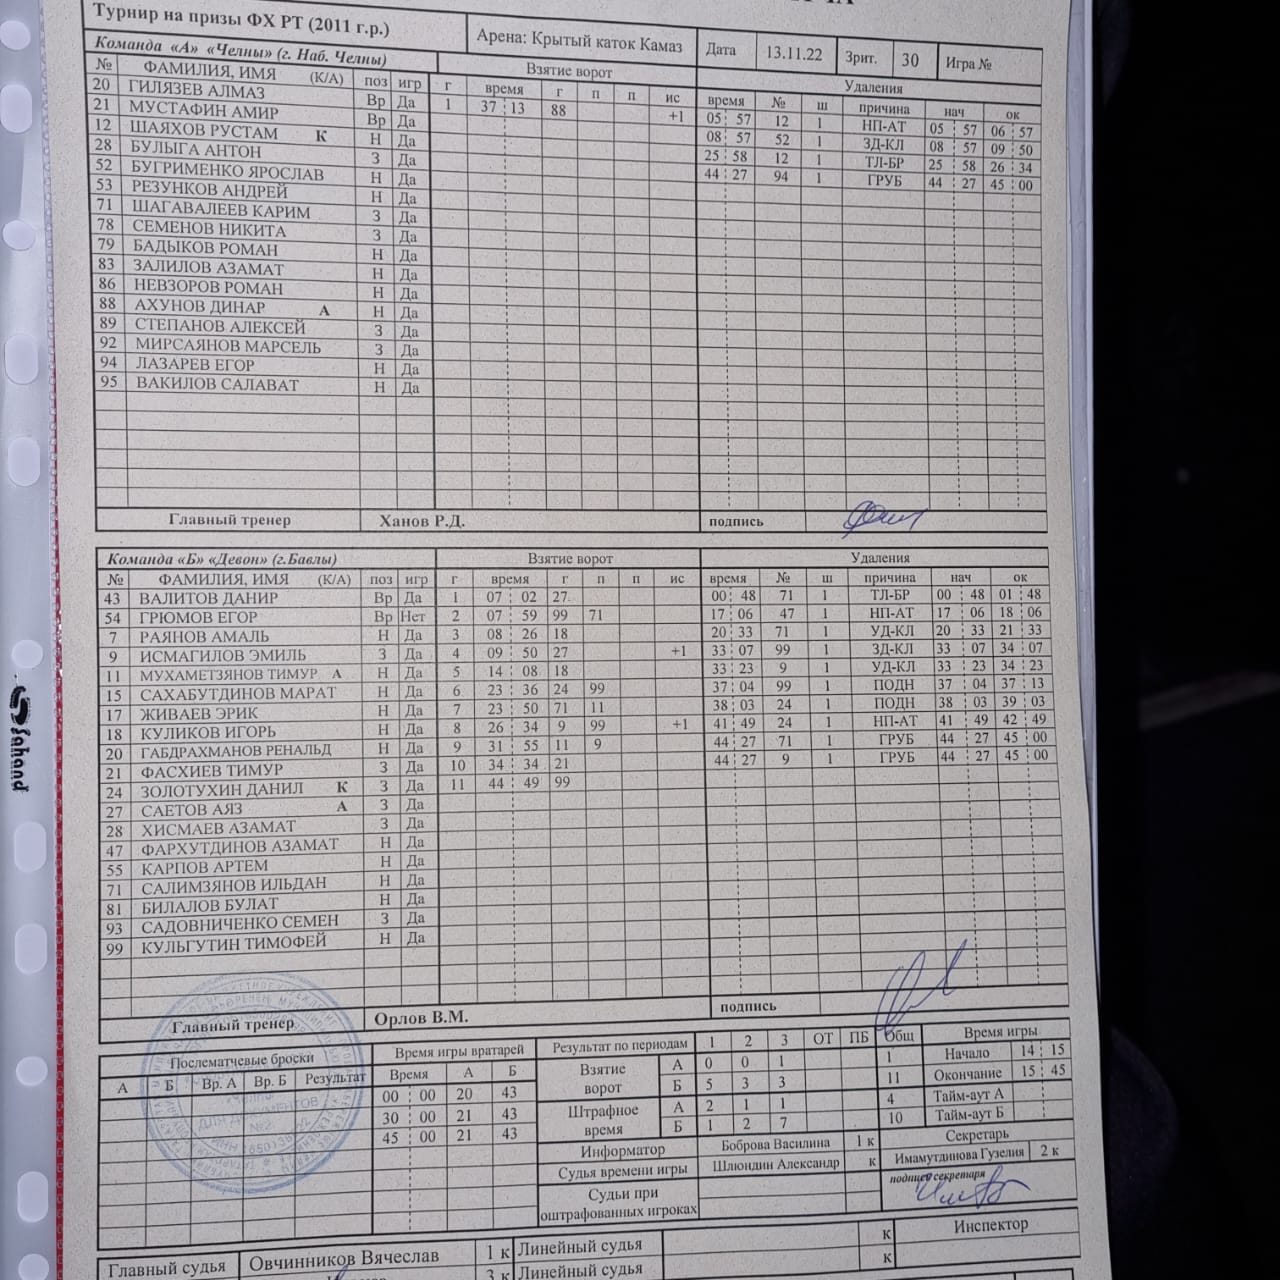 Турнир на призы ФХ РТ (2011 г.р.) Арена: Крытый каток Камаз Дата 13.11.22 Зрит. 30 Игра №
Команда «А» «Челны» (г. Наб. Челны) Взятие ворот Удаления
№ ФАМИЛИЯ, ИМЯ (К/А) поз игр г время г п п ис время № ш причина нач ок
20 ГИЛЯЗЕВ АЛМАЗ Вр Да 1 37 13 88 +1 05 57 12 1 НП-АТ 05 57 06 57
21 МУСТАФИН АМИР Вр Да 08 57 52 1 ЗД-КЛ 08 57 09 50
12 ШАЯХОВ РУСТАМ К Н Да 25 58 12 1 ТЛ-БР 25 58 26 34
28 БУЛЫГА АНТОН З Да 44 27 94 1 ГРУБ 44 27 45 00
52 БУГРИМЕНКО ЯРОСЛАВ Н Да
53 РЕЗУНКОВ АНДРЕЙ Н Да
71 ШАГАВАЛЕЕВ КАРИМ З Да
78 СЕМЕНОВ НИКИТА З Да
79 БАДЫКОВ РОМАН Н Да
83 ЗАЛИЛОВ АЗАМАТ Н Да
86 НЕВЗОРОВ РОМАН Н Да
88 АХУНОВ ДИНАР А Н Да
89 СТЕПАНОВ АЛЕКСЕЙ З Да
92 МИРСАЯНОВ МАРСЕЛЬ З Да
94 ЛАЗАРЕВ ЕГОР Н Да
95 ВАКИЛОВ САЛАВАТ Н Да
Главный тренер Ханов Р.Д. подпись
Команда «Б» «Девон» (г.Бавлы) Взятие ворот Удаления
№ ФАМИЛИЯ, ИМЯ (К/А) поз игр г время г п п ис время № ш причина нач ок
43 ВАЛИТОВ ДАНИР Вр Да 1 07 02 27 00 48 71 1 ТЛ-БР 00 48 01 48
54 ГРЮМОВ ЕГОР Вр Нет 2 07 59 99 71 17 06 47 1 НП-АТ 17 06 18 06
7 РАЯНОВ АМАЛЬ Н Да 3 08 26 18 20 33 71 1 УД-КЛ 20 33 21 33
9 ИСМАГИЛОВ ЭМИЛЬ З Да 4 09 50 27 +1 33 07 99 1 ЗД-КЛ 33 07 34 07
11 МУХАМЕТЗЯНОВ ТИМУР А Н Да 5 14 08 18 33 23 9 1 УД-КЛ 33 23 34 23
15 САХАБУТДИНОВ МАРАТ Н Да 6 23 36 24 99 37 04 99 1 ПОДН 37 04 37 13
17 ЖИВАЕВ ЭРИК Н Да 7 23 50 71 11 38 03 24 1 ПОДН 38 03 39 03
18 КУЛИКОВ ИГОРЬ Н Да 8 26 34 9 99 +1 41 49 24 1 НП-АТ 41 49 42 49
20 ГАБДРАХМАНОВ РЕНАЛЬД Н Да 9 31 55 11 9 44 27 71 1 ГРУБ 44 27 45 00
21 ФАСХИЕВ ТИМУР З Да 10 34 34 21 44 27 9 1 ГРУБ 44 27 45 00
24 ЗОЛОТУХИН ДАНИЛ К З Да 11 44 49 99
27 САЕТОВ АЯЗ А З Да
28 ХИСМАЕВ АЗАМАТ З Да
47 ФАРХУТДИНОВ АЗАМАТ Н Да
55 КАРПОВ АРТЕМ Н Да
71 САЛИМЗЯНОВ ИЛЬДАН Н Да
81 БИЛАЛОВ БУЛАТ Н Да
93 САДОВНИЧЕНКО СЕМЕН З Да
99 КУЛЬГУТИН ТИМОФЕЙ Н Да
Главный тренер Орлов В.М. подпись
Послематчевые броски Время игры вратарей Результат по периодам 1 2 3 ОТ ПБ Общ Время игры
А Б Вр. А Вр. Б Результат Время А Б Взятие ворот А 0 0 1 1 Начало 14 15
00 00 20 43 Б 5 3 3 11 Окончание 15 45
30 00 21 43 Штрафное время А 2 1 1 4 Тайм-аут А
45 00 21 43 Б 1 2 7 10 Тайм-аут Б
Информатор Боброва Василина 1 к Секретарь
Судья времени игры Шлюндин Александр к Имамутдинова Гузелия 2 к
Судьи при оштрафованных игроках подпись секретаря
Главный судья Овчинников Вячеслав 1 к Линейный судья к Инспектор
3 к Линейный судья к
ДЛЯ ДОКУМЕНТОВ
№2
sahand